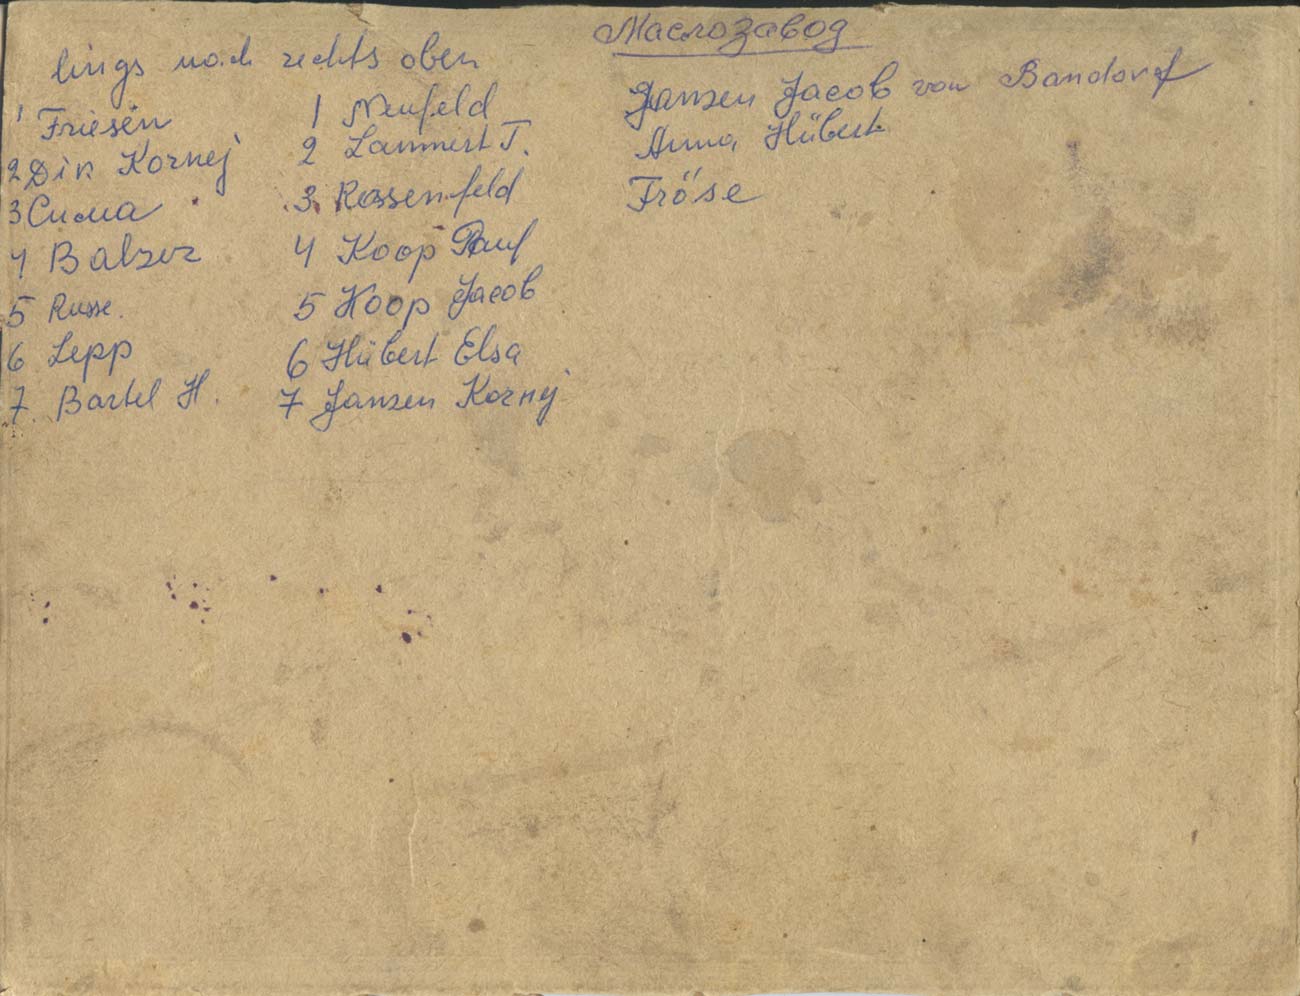 Маслозавод
lings nach rechts oben
1 Friesen
2 Dik Kornej
3 Сима
4 Balzer
5 Russe.
6 Lepp
7. Bartel H.
1 Neufeld
2 Lammert T.
3. Rossenfeld
4 Koop Paul
5 Koop Jacob
6 Hübert Elsa
7 Janzen Kornej
Janzen Jacob von Bandorf
Anna Hübert
Fröse